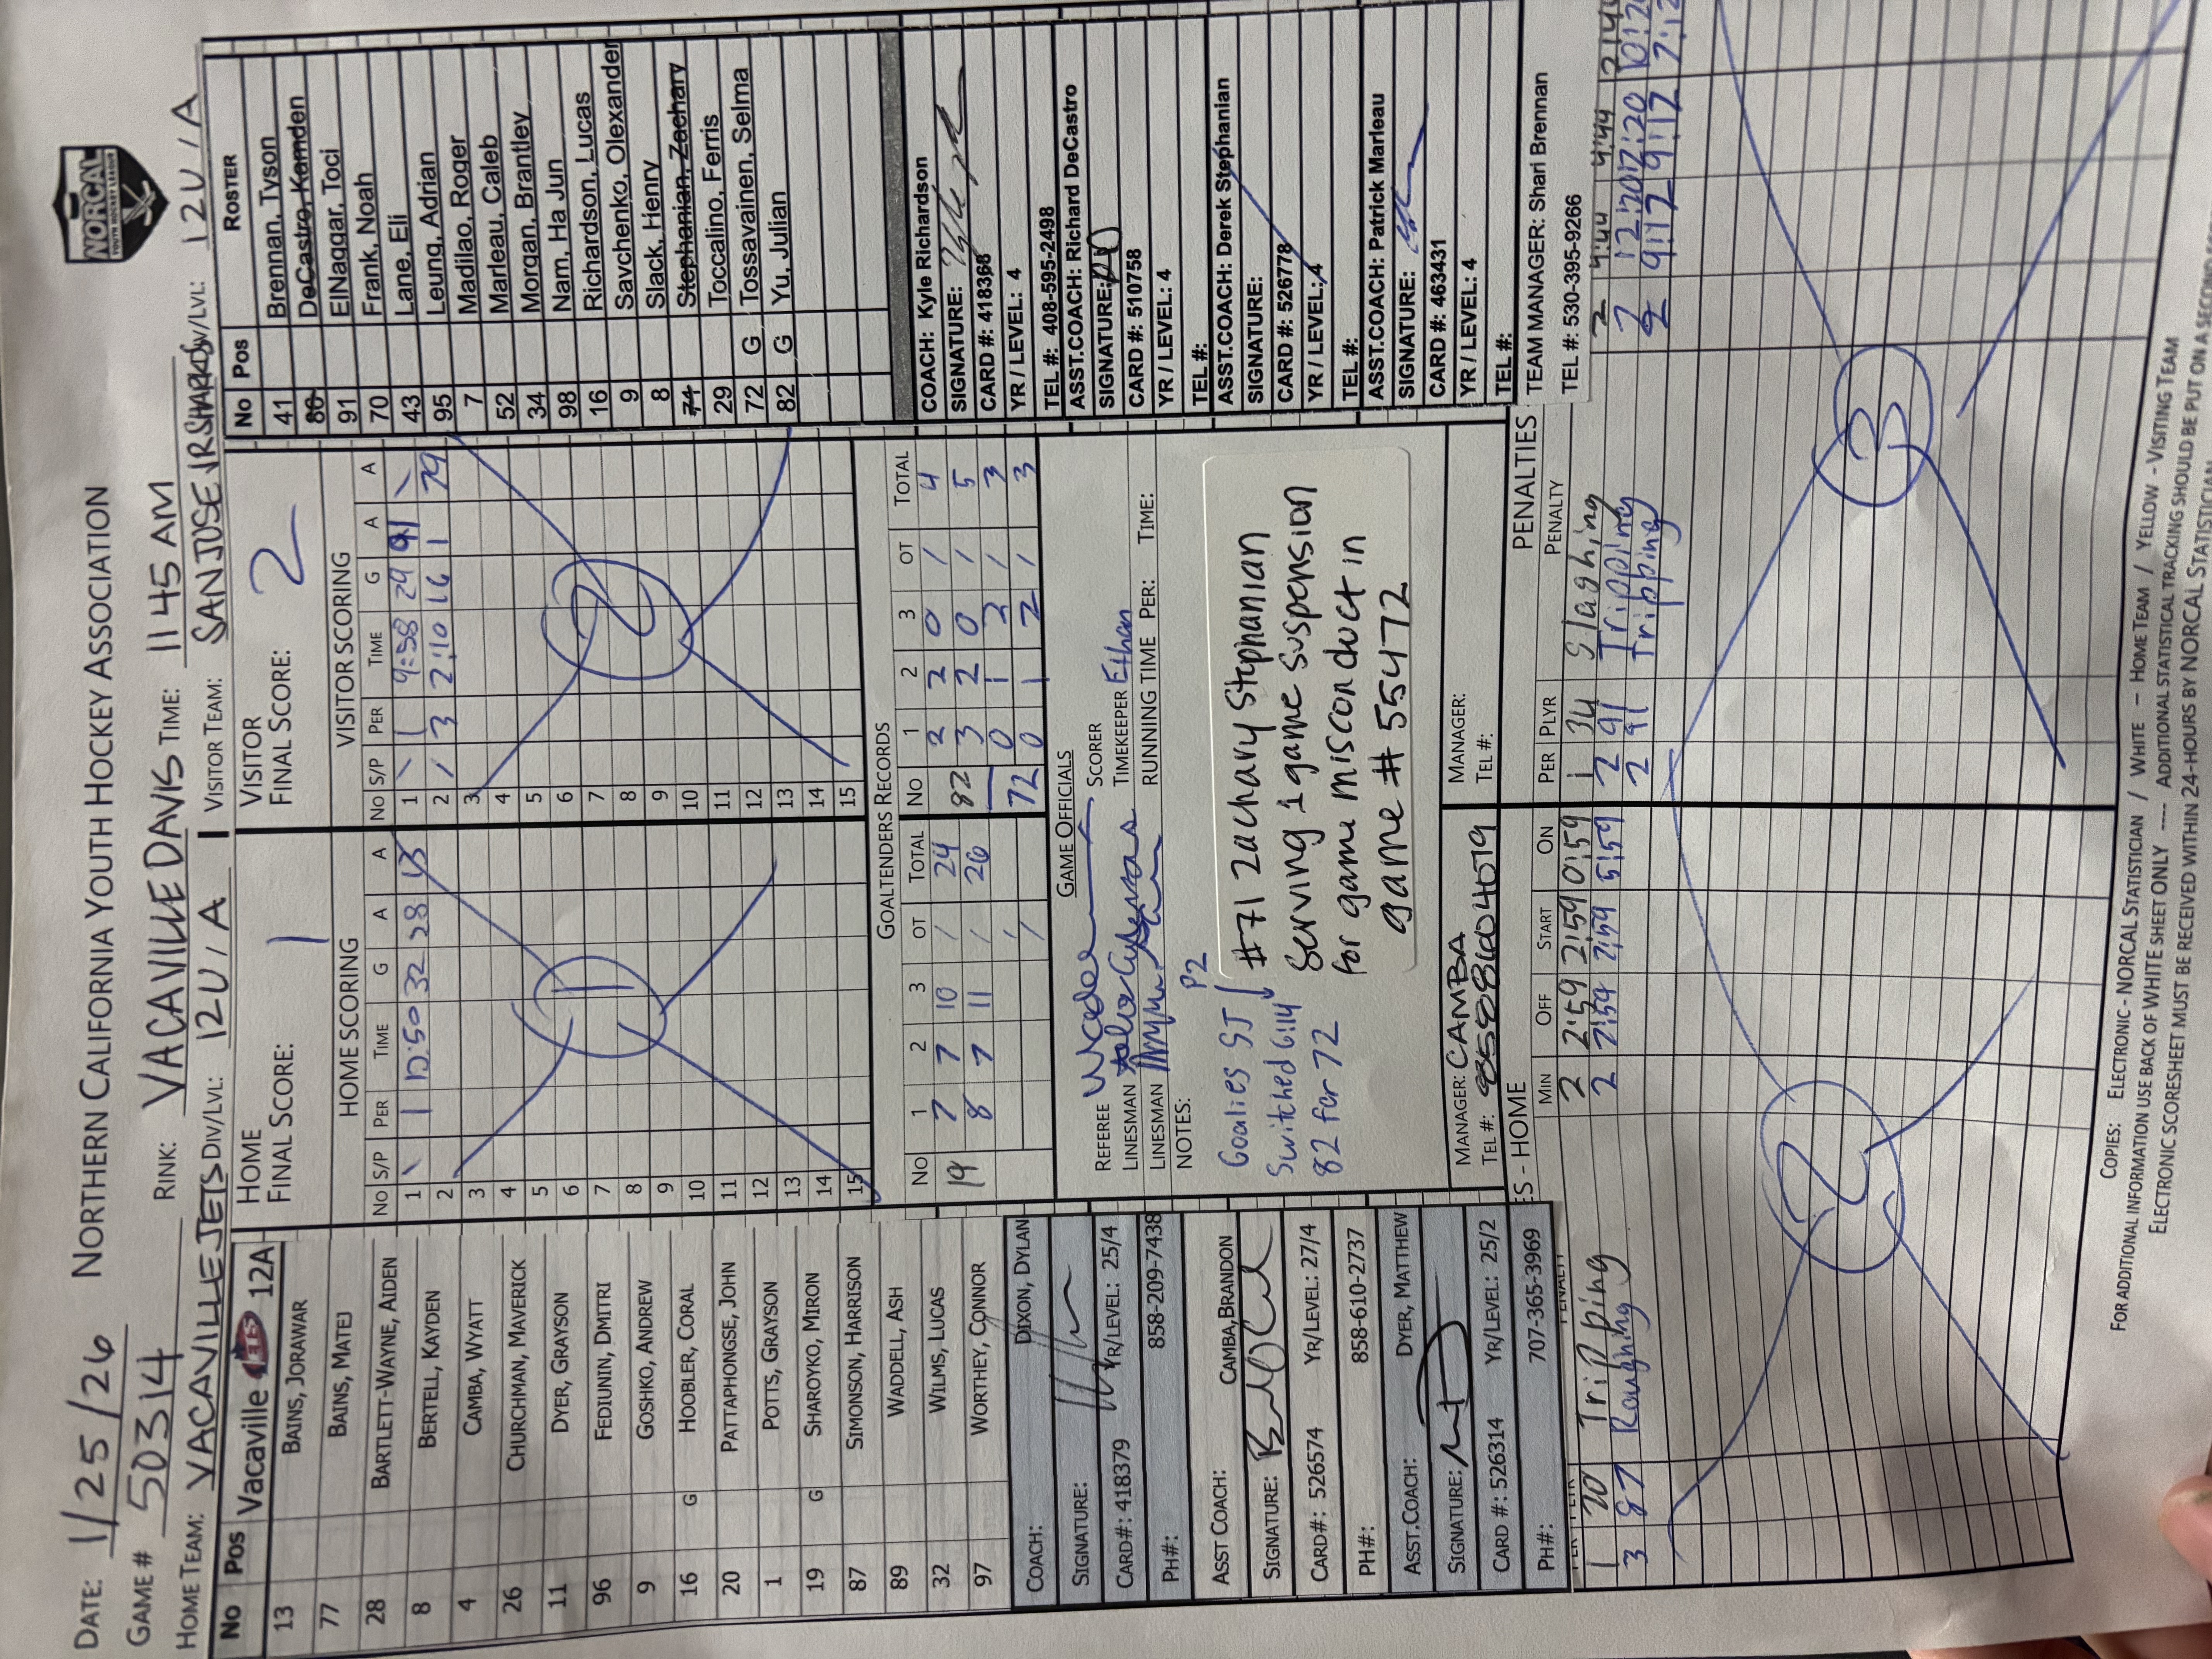 DATE: 1/25/26 NORTHERN CALIFORNIA YOUTH HOCKEY ASSOCIATION
NORCAL
YOUTH HOCKEY LEAGUE
GAME # 50314 RINK: VACAVILLE DAVIS TIME: 11 45 AM
HOME TEAM: VACAVILLE JETS DIV/LVL: 12U / A VISITOR TEAM: SAN JOSE JR SHARKS DIV/LVL: 12U / A
No Pos Vacaville JETS 12A
13 BAINS, JORAWAR
77 BAINS, MATEJ
28 BARTLETT-WAYNE, AIDEN
8 BERTELL, KAYDEN
4 CAMBA, WYATT
26 CHURCHMAN, MAVERICK
11 DYER, GRAYSON
96 FEDIUNIN, DMITRI
9 GOSHKO, ANDREW
16 G HOOBLER, CORAL
20 PATTAPHONGSE, JOHN
1 POTTS, GRAYSON
19 G SHAROYKO, MIRON
87 SIMONSON, HARRISON
89 WADDELL, ASH
32 WILMS, LUCAS
97 WORTHEY, CONNOR
COACH: DIXON, DYLAN
SIGNATURE:
CARD#: 418379 YR/LEVEL: 25/4
PH#: 858-209-7438
ASST COACH: CAMBA, BRANDON
SIGNATURE:
CARD#: 526574 YR/LEVEL: 27/4
PH#: 858-610-2737
ASST.COACH: DYER, MATTHEW
SIGNATURE:
CARD #: 526314 YR/LEVEL: 25/2
PH#: 707-365-3969
HOME
FINAL SCORE: 1
HOME SCORING
NO S/P PER TIME G A A
1 \ 1 12:50 32 28 13
2
3
4
5
6
7
8
9
10
11
12
13
14
15
1
VISITOR
FINAL SCORE: 2
VISITOR SCORING
NO S/P PER TIME G A A
1 \ 1 9:58 29 91 \
2 / 3 2:10 16 1 79
3
4
5
6
7
8
9
10
11
12
13
14
15
2
GOALTENDERS RECORDS
NO 1 2 3 OT TOTAL NO 1 2 3 OT TOTAL
19 7 7 10 / 24 82 2 2 0 / 4
8 7 11 / 26 3 2 0 / 5
72 0 1 2 / 3
0 1 2 / 3
GAME OFFICIALS
REFEREE SCORER
LINESMAN TIMEKEEPER Ethan
LINESMAN RUNNING TIME PER: TIME:
NOTES:
Goalies SJ P2
Switched 6:14
82 for 72
#71 Zachary Stephanian
Serving 1 game suspension
for game misconduct in
game # 55472
MANAGER: CAMBA MANAGER:
TEL #: 8588604079 TEL #:
No Pos ROSTER
41 Brennan, Tyson
86 DeCastro, Kamden
91 ElNaggar, Toci
70 Frank, Noah
43 Lane, Eli
95 Leung, Adrian
7 Madilao, Roger
52 Marleau, Caleb
34 Morgan, Brantley
98 Nam, Ha Jun
16 Richardson, Lucas
9 Savchenko, Olexander
8 Slack, Henry
71 Stephanian, Zachary
29 Toccalino, Ferris
72 G Tossavainen, Selma
82 G Yu, Julian
COACH: Kyle Richardson
SIGNATURE:
CARD #: 418368
YR / LEVEL: 4
TEL #: 408-595-2498
ASST.COACH: Richard DeCastro
SIGNATURE:
CARD #: 510758
YR / LEVEL: 4
TEL #:
ASST.COACH: Derek Stephanian
SIGNATURE:
CARD #: 526778
YR / LEVEL: 4
TEL #:
ASST.COACH: Patrick Marleau
SIGNATURE:
CARD #: 463431
YR / LEVEL: 4
TEL #:
TEAM MANAGER: Shari Brennan
TEL #: 530-395-9266
ES - HOME
MIN OFF START ON
1 20 Tripping 2 2:59 2:59 0:59
3 87 Roughing 2 7:59 7:59 5:59
2
PENALTIES
PER PLYR PENALTY
1 34 Slashing 2 4:44 4:44 2:44
2 91 Tripping 2 12:20 12:20 10:20
2 91 Tripping 2 9:12 9:12 7:12
3
COPIES: ELECTRONIC - NORCAL STATISTICIAN / WHITE – HOME TEAM / YELLOW - VISITING TEAM
FOR ADDITIONAL INFORMATION USE BACK OF WHITE SHEET ONLY ---- ADDITIONAL STATISTICAL TRACKING SHOULD BE PUT ON A
ELECTRONIC SCORESHEET MUST BE RECEIVED WITHIN 24-HOURS BY NORCAL STATISTICIAN